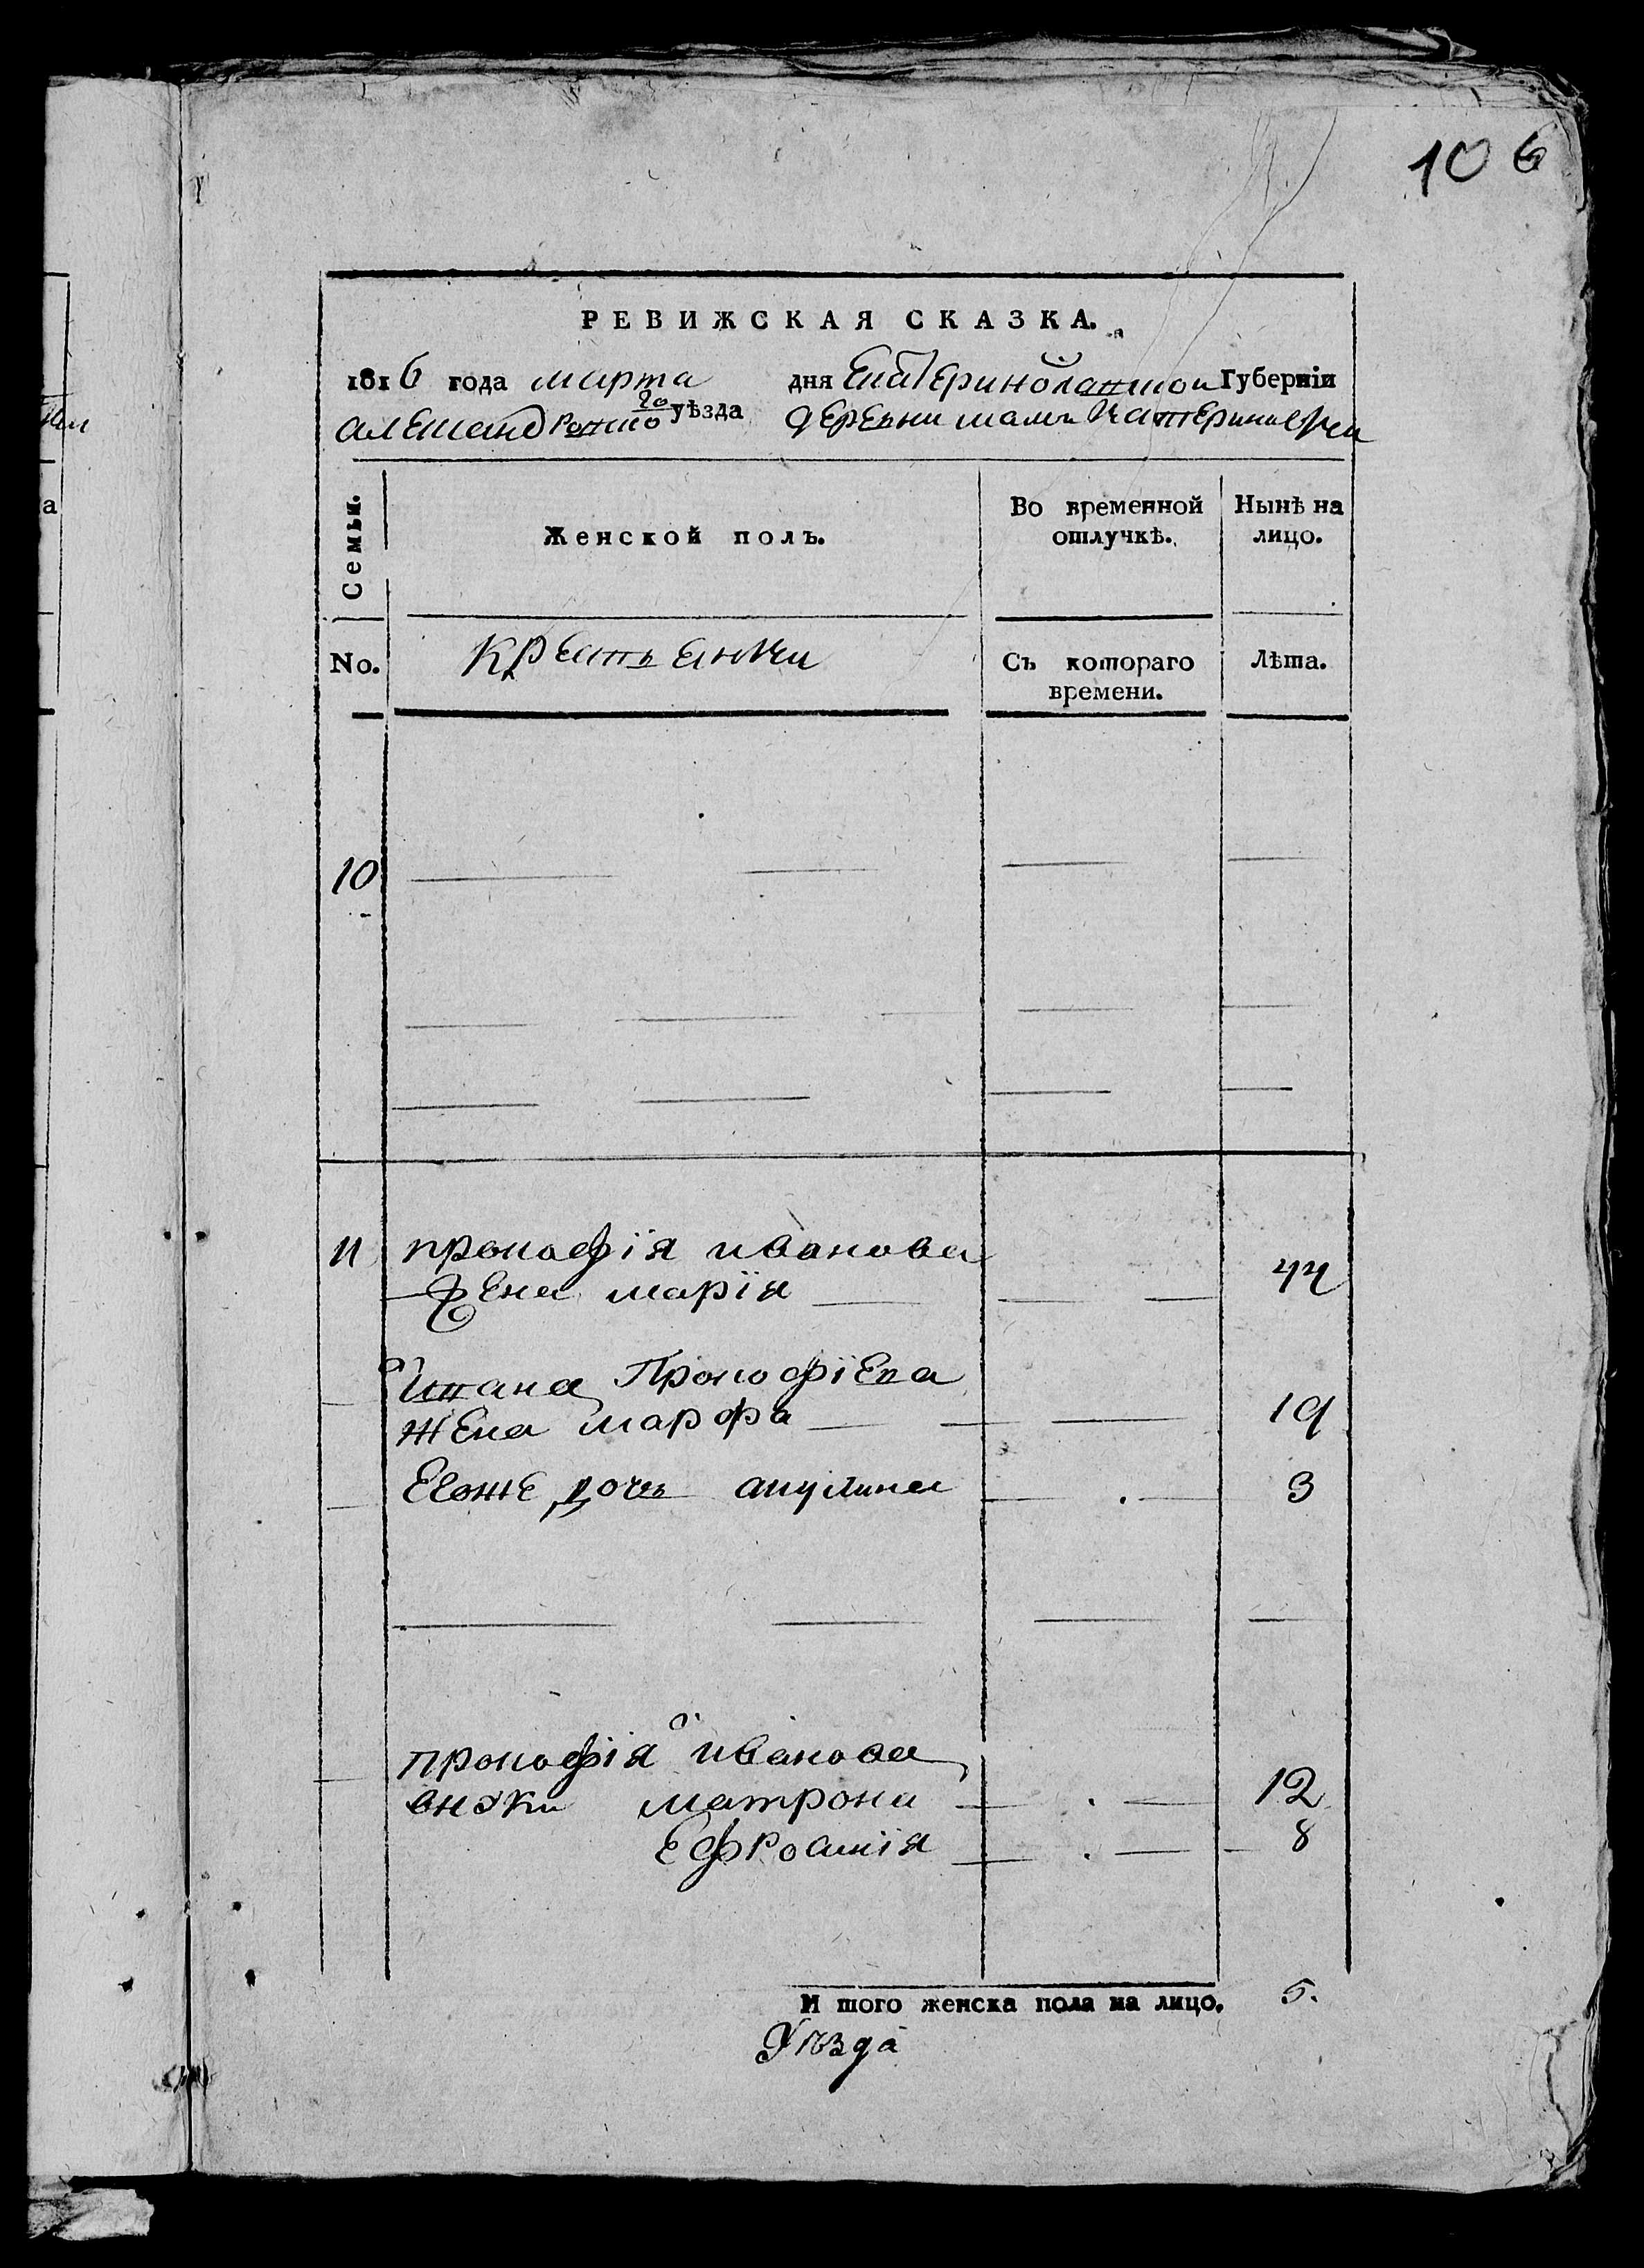 106
РЕВИЖСКАЯ СКАЗКА.
1816 года марта дня Екатеринославской Губерніи
александровскаго уѣзда деревни Катериновки
Семьи. Женской полъ. Во временной отлучкѣ. Нынѣ на лицо.
No. крестьянки Съ котораго времени. Лѣта.
10
11 прокофія иванова
жена марія 44
Ивана Прокофіева
жена марфа 19
Егоже дочь акулина 3
прокофія иванова
внуки матрона 12
Ефросинія 8
И того женска пола на лицо. 5.
Уѣзда